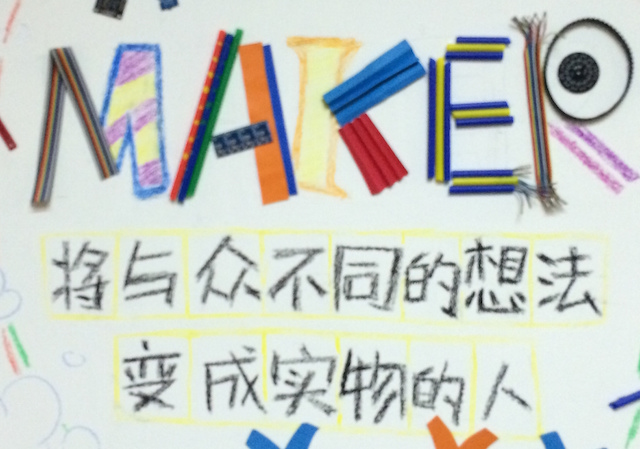 MAKER
将与众不同的想法
变成实物的人